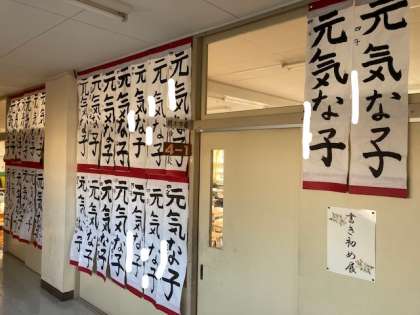 元気な子
元気な子
元気な子
元気な子
元気な子
元気な子
元気な子
元気な子
元気な子
元気な子
元気な子
元気な子
元気な子
元気な子
元気な子
元気な子
4-1
書き初め展